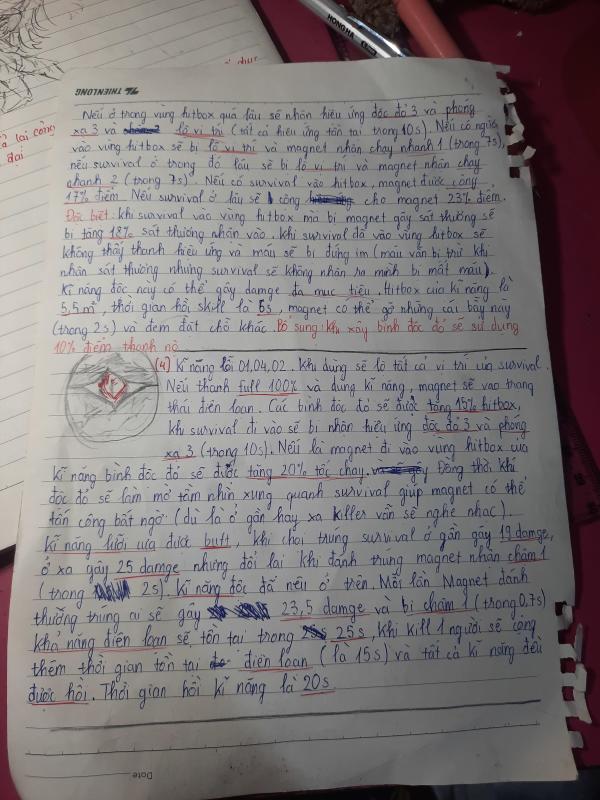 HONGHA
THIENLONG
Nếu ở trong vùng hitbox quá lâu sẽ nhận hiệu ứng độc đỏ 3 và phóng
xạ 3 và lộ vị trí (tất cả hiệu ứng tồn tại trong 10s). Nếu có người
vào vùng hitbox sẽ bị lộ vị trí và magnet nhận chạy nhanh 1 (trong 7s),
nếu survival ở trong đó lâu sẽ bị lộ vị trí và magnet nhận chạy
nhanh 2 (trong 7s). Nếu có survival vào hitbox, magnet được cộng
17% điểm. Nếu survival ở lâu sẽ cộng cho magnet 23% điểm.
Đặc biệt: khi survival vào vùng hitbox mà bị magnet gây sát thương sẽ
bị tăng 18% sát thương nhận vào. khi survival đã vào vùng hitbox sẽ
không thấy thanh hiệu ứng và máu sẽ bị đứng im (máu vẫn bị trừ khi
nhận sát thương nhưng survival sẽ không nhận ra mình bị mất máu).
Kĩ năng độc này có thể gây damge đa mục tiêu. Hitbox của kĩ năng là
5,5m², thời gian hồi skill là 6s, magnet có thể gỡ những cái bẫy này
(trong 2s) và đem đặt chỗ khác. Bổ sung: khi xây bình độc đỏ sẽ sử dụng
10% điểm thanh nộ
(4) Kĩ năng lõi 01.04.02. Khi dùng sẽ lộ tất cả vị trí của survival.
Nếu thanh full 100% và dùng kĩ năng, magnet sẽ vào trạng
thái điên loạn. Các bình độc đỏ sẽ được tăng 15% hitbox,
khi survival đi vào sẽ bị nhận hiệu ứng độc đỏ 3 và phóng
xạ 3 (trong 10s). Nếu là magnet đi vào vùng hitbox của
kĩ năng bình độc đỏ sẽ được tăng 20% tốc chạy. Đồng thời khí
độc đỏ sẽ làm mờ tầm nhìn xung quanh survival giúp magnet có thể
tấn công bất ngờ (dù là ở gần hay xa killer vẫn sẽ nghe nhạc).
Kĩ năng lưỡi cưa được buff, khi chơi trúng survival ở gần gây 19 damge,
ở xa gây 25 damge nhưng đổi lại khi đánh trúng magnet nhận chậm 1
(trong 2s). Kĩ năng độc đã nêu ở trên. Mỗi lần Magnet đánh
thường trúng ai sẽ gây 23,5 damge và bị chậm 1 (trong 0.7s)
khả năng điên loạn sẽ tồn tại trong 25s, khi kill 1 người sẽ cộng
thêm thời gian tồn tại điên loạn (là 15s) và tất cả kĩ năng đều
được hồi. Thời gian hồi kĩ năng là 20s
Date